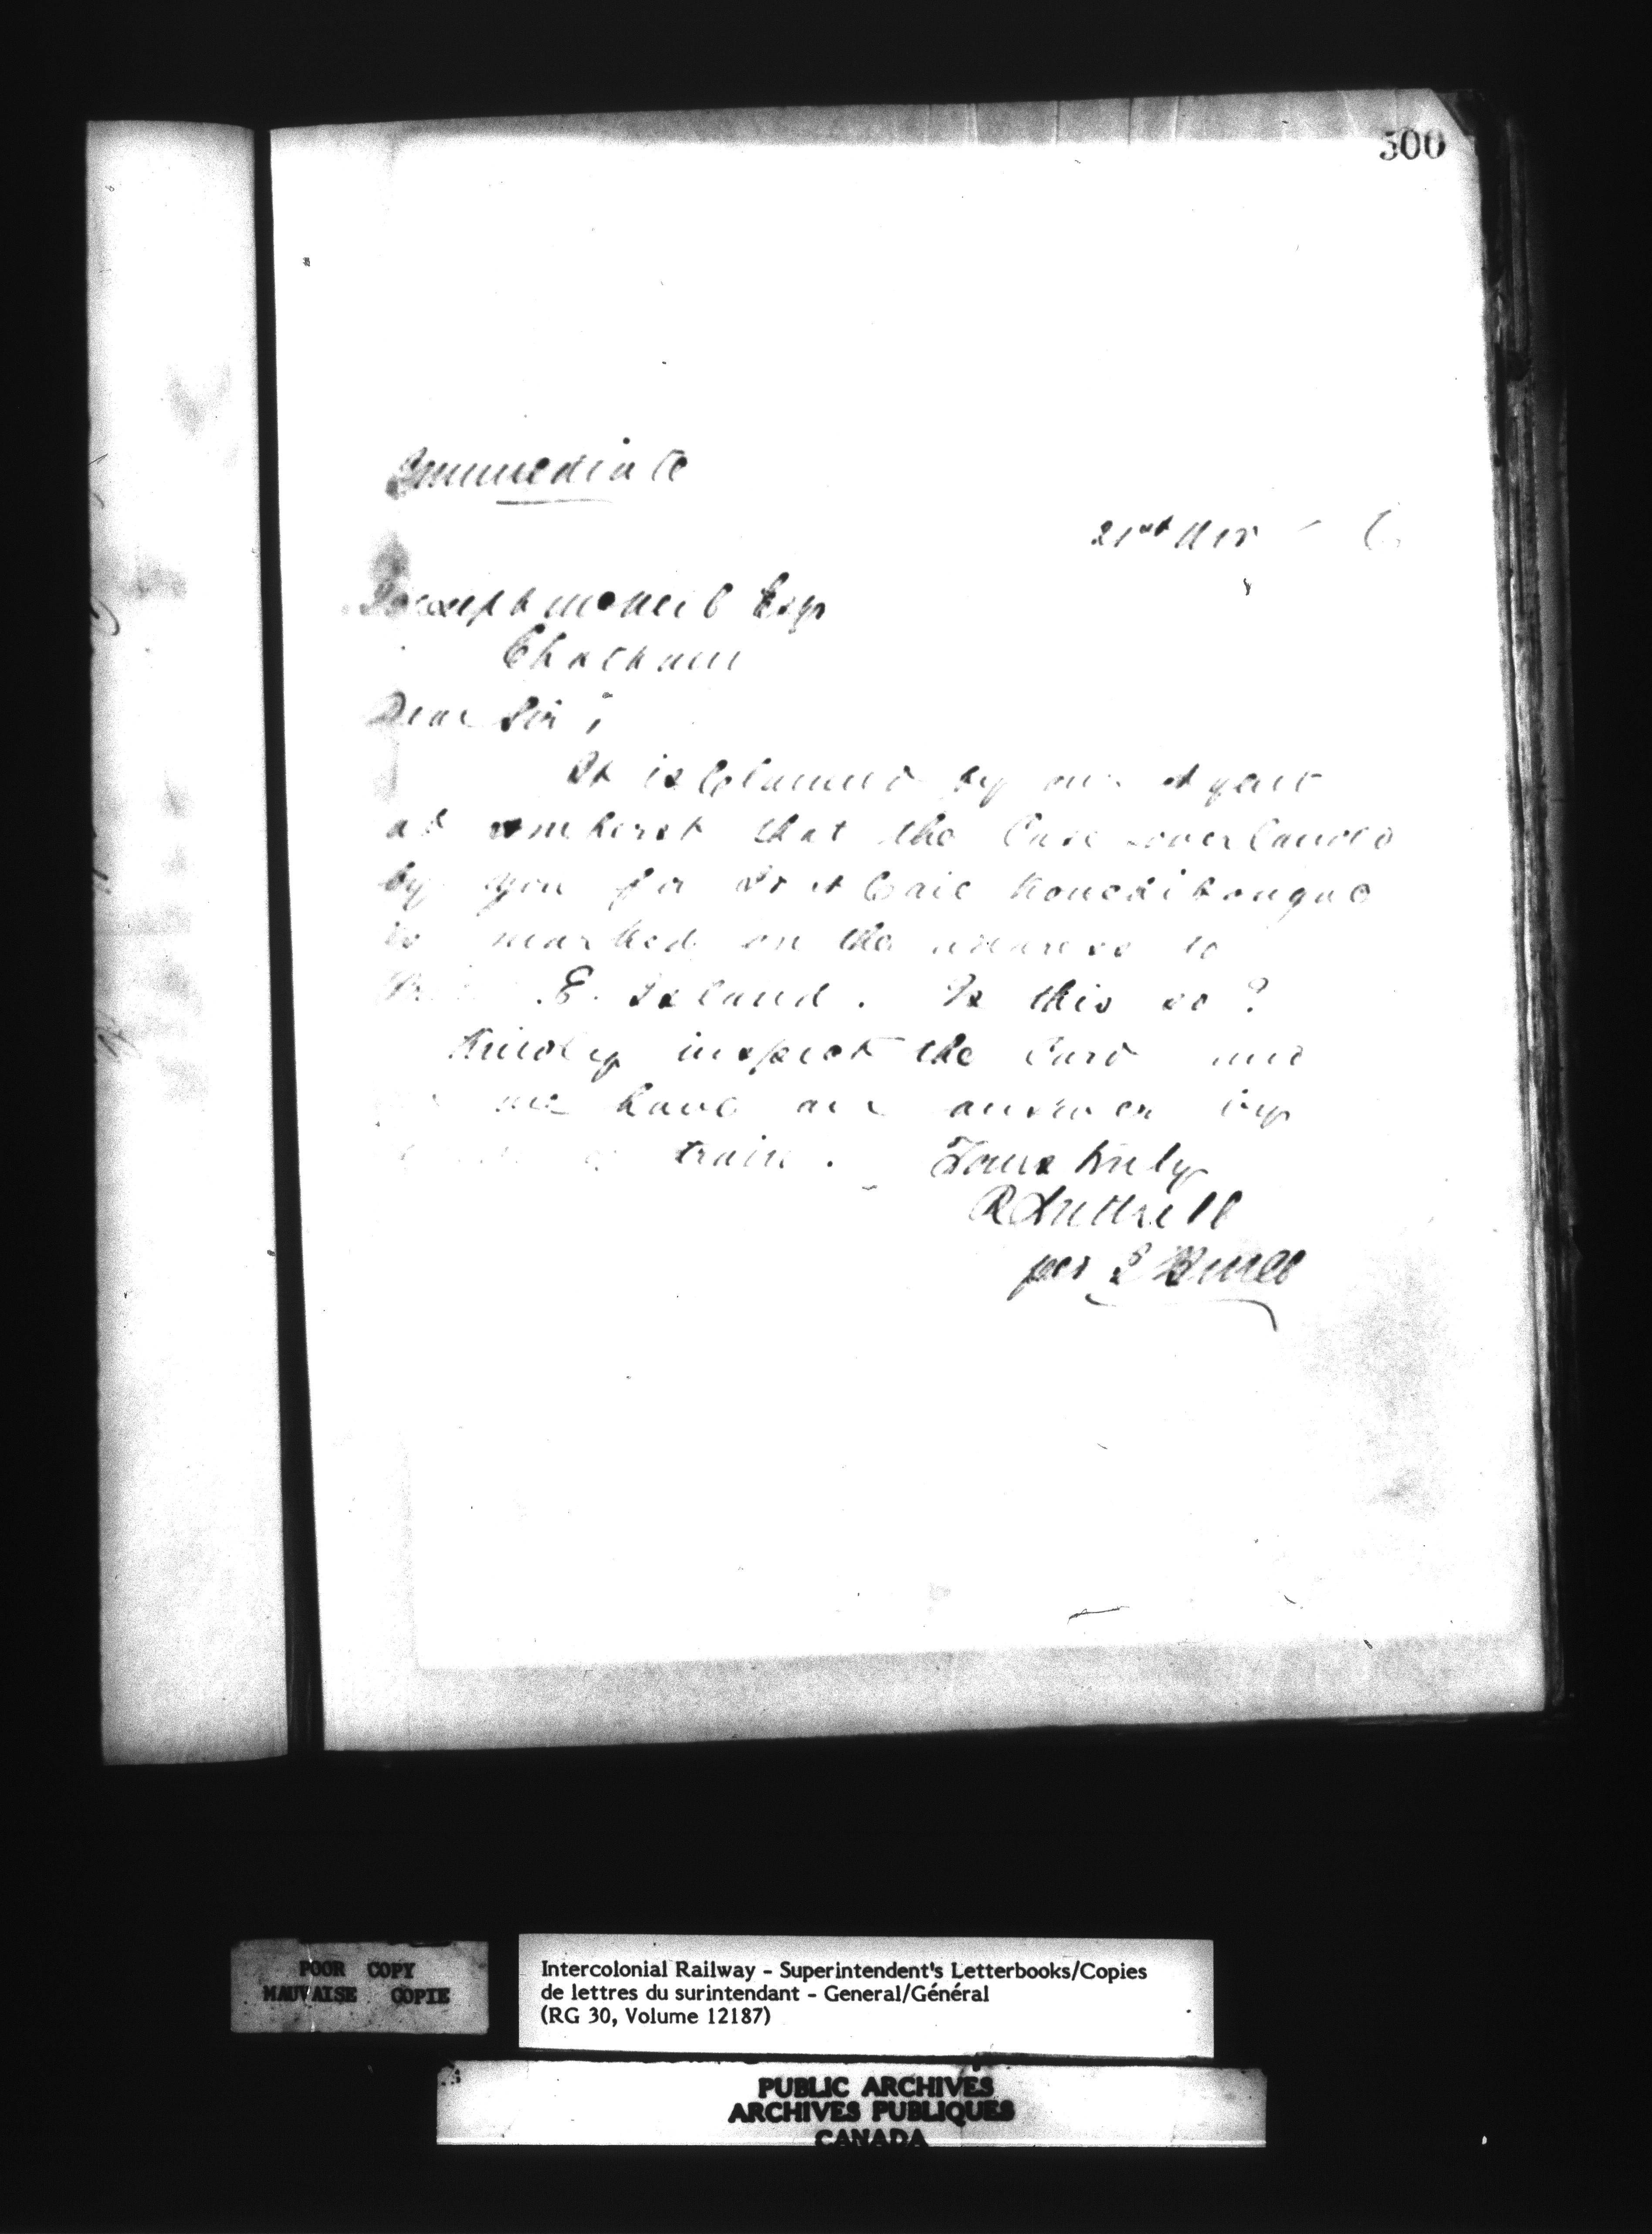 500
Immediate
21st Nov
Joseph McNeil Esqr
Chatham
Dear Sir;
It is claimed by our Agent
at Amherst that the Case overlanded
by you for Kouchibouguac
is marked on the address to
E. Island. Is this so?
Kindly inspect the Card and
me have an answer by
train. Yours truly
R Luttrell
per
POOR COPY
MAUVAISE COPIE
Intercolonial Railway - Superintendent's Letterbooks/Copies
de lettres du surintendant - General/Général
(RG 30, Volume 12187)
PUBLIC ARCHIVES
ARCHIVES PUBLIQUES
CANADA